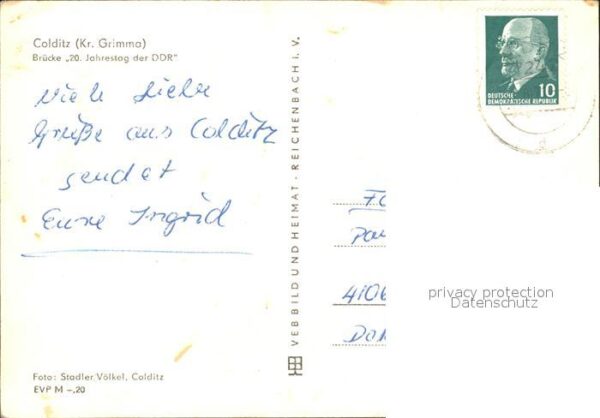 Colditz (Kr. Grimma)
Brücke „20. Jahrestag der DDR"
Viele liebe
Grüße aus Colditz
sendet
Eure Ingrid
Foto: Stadler Völkel, Colditz
EVP M –,20
VEB BILD UND HEIMAT · REICHENBACH I. V.
10
DEUTSCHE
DEMOKRATISCHE REPUBLIK
4106
privacy protection
Datenschutz